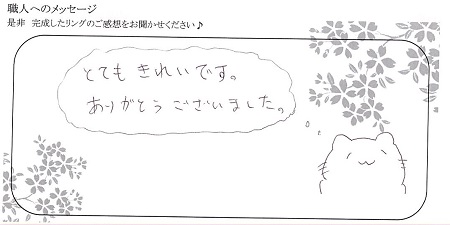 職人へのメッセージ
是非 完成したリングのご感想をお聞かせください♪
とても きれいです。
ありがとう ございました。